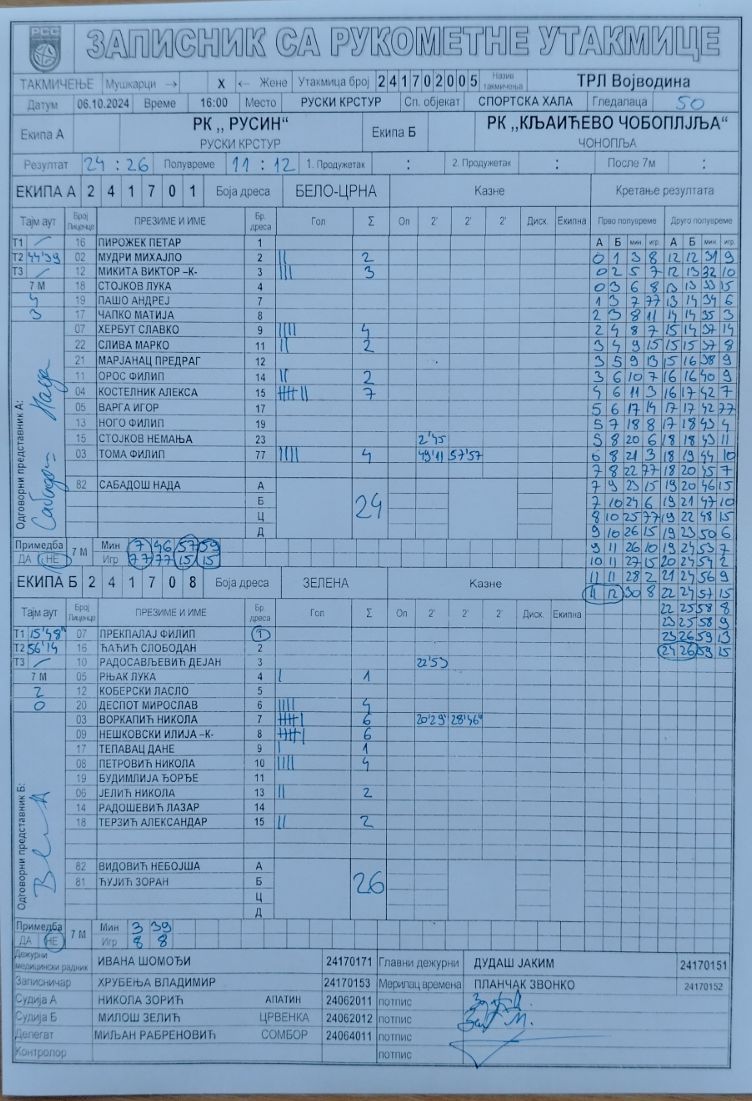 РСС
ЗАПИСНИК СА РУКОМЕТНЕ УТАКМИЦЕ
ТАКМИЧЕЊЕ Мушкарци → X ← Жене Утакмица број 241702005 Назив такмичења ТРЛ Војводина
Датум 06.10.2024 Време 16:00 Место РУСКИ КРСТУР Сп. објекат СПОРТСКА ХАЛА Гледалаца 50
Екипа А РК ,, РУСИН“ РУСКИ КРСТУР Екипа Б РК ,,КЉАИЋЕВО ЧОБОПЛЈЉА“ ЧОНОПЉА
Резултат 24 : 26 Полувреме 11 : 12 1. Продужетак : 2. Продужетак : После 7м :
ЕКИПА А 2 4 1 7 0 1 Боја дреса БЕЛО-ЦРНА Казне Кретање резултата
Тајм аут Број Лиценце ПРЕЗИМЕ И ИМЕ Бр. дреса Гол Σ Оп 2' 2' 2' Диск. Екипна Прво полувреме Друго полувреме
А Б мин игр. А Б мин игр.
Т1 / 16 ПИРОЖЕК ПЕТАР 1 0 1 3 8 12 12 31 9
Т2 44'39 02 МУДРИ МИХАЈЛО 2 || 2 0 2 5 7 12 13 32 10
Т3 / 12 МИКИТА ВИКТОР –К- 3 ||| 3 0 3 6 8 13 13 33 15
7 М 18 СТОЈКОВ ЛУКА 4 1 3 7 77 13 14 34 6
4 19 ПАШО АНДРЕЈ 7 2 3 8 11 14 14 35 3
3 17 ЧАПКО МАТИЈА 8 2 4 8 7 15 14 37 14
07 ХЕРБУТ СЛАВКО 9 |||| 4 3 4 9 15 15 15 37 8
22 СЛИВА МАРКО 11 || 2 3 5 9 13 15 16 38 9
21 МАРЈАНАЦ ПРЕДРАГ 12 3 6 10 7 16 16 40 9
11 ОРОС ФИЛИП 14 || 2 4 6 11 3 16 17 42 7
04 КОСТЕЛНИК АЛЕКСА 15 |||| || 7 5 6 17 14 17 17 42 77
05 ВАРГА ИГОР 17 5 7 18 8 17 18 43 4
13 НОГО ФИЛИП 19 5 8 20 6 18 18 43 11
15 СТОЈКОВ НЕМАЊА 23 2'45 6 8 21 3 18 19 44 10
03 ТОМА ФИЛИП 77 |||| 4 49'11 57'57 7 8 22 77 18 20 45 7
7 9 23 15 19 20 46 15
82 САБАДОШ НАДА А 7 10 24 6 19 21 47 10
Б 24 8 10 25 77 19 22 48 15
Ц 9 10 26 15 19 23 50 6
Д 9 11 26 10 19 24 53 7
Одговорни представник А: Сабадош Нада
Примедба 7 М Мин 7 46 57 59 10 11 27 15 20 24 54 2
ДА НЕ Игр 77 77 15 15 11 11 28 2 21 24 56 9
ЕКИПА Б 2 4 1 7 0 8 Боја дреса ЗЕЛЕНА Казне 11 12 30 8 22 24 57 15
Тајм аут Број Лиценце ПРЕЗИМЕ И ИМЕ Бр. дреса Гол Σ Оп 2' 2' 2' Диск. Екипна 22 25 58 8
23 25 58 9
Т1 15'48" 07 ПРЕКПАЛАЈ ФИЛИП 1 23 26 59 13
Т2 56'14 16 ЋАЋИЋ СЛОБОДАН 2 24 26 59 15
Т3 / 10 РАДОСАВЉЕВИЋ ДЕЈАН 3 22'53
7 М 05 РЊАК ЛУКА 4 | 1
2 12 КОБЕРСКИ ЛАСЛО 5
0 20 ДЕСПОТ МИРОСЛАВ 6 |||| 4
03 ВОРКАПИЋ НИКОЛА 7 |||| | 6 20'29" 28'46"
09 НЕШКОВСКИ ИЛИЈА –К- 8 |||| | 6
17 ТЕПАВАЦ ДАНЕ 9 | 1
08 ПЕТРОВИЋ НИКОЛА 10 |||| 4
19 БУДИМЛИЈА ЂОРЂЕ 11
06 ЈЕЛИЋ НИКОЛА 13 || 2
14 РАДОШЕВИЋ ЛАЗАР 14
18 ТЕРЗИЋ АЛЕКСАНДАР 15 || 2
82 ВИДОВИЋ НЕБОЈША А
81 ЋУЈИЋ ЗОРАН Б 26
Ц
Д
Одговорни представник Б:
Примедба 7 М Мин 3 39
ДА НЕ Игр 8 8
Дежурни медицински радник ИВАНА ШОМОЂИ 24170171 Главни дежурни ДУДАШ ЈАКИМ 24170151
Записничар ХРУБЕЊА ВЛАДИМИР 24170153 Мерилац времена ПЛАНЧАК ЗВОНКО 24170152
Судија А НИКОЛА ЗОРИЋ АПАТИН 24062011 потпис
Судија Б МИЛОШ ЗЕЛИЋ ЦРВЕНКА 24062012 потпис
Делегат МИЉАН РАБРЕНОВИЋ СОМБОР 24064011 потпис
Контролор потпис